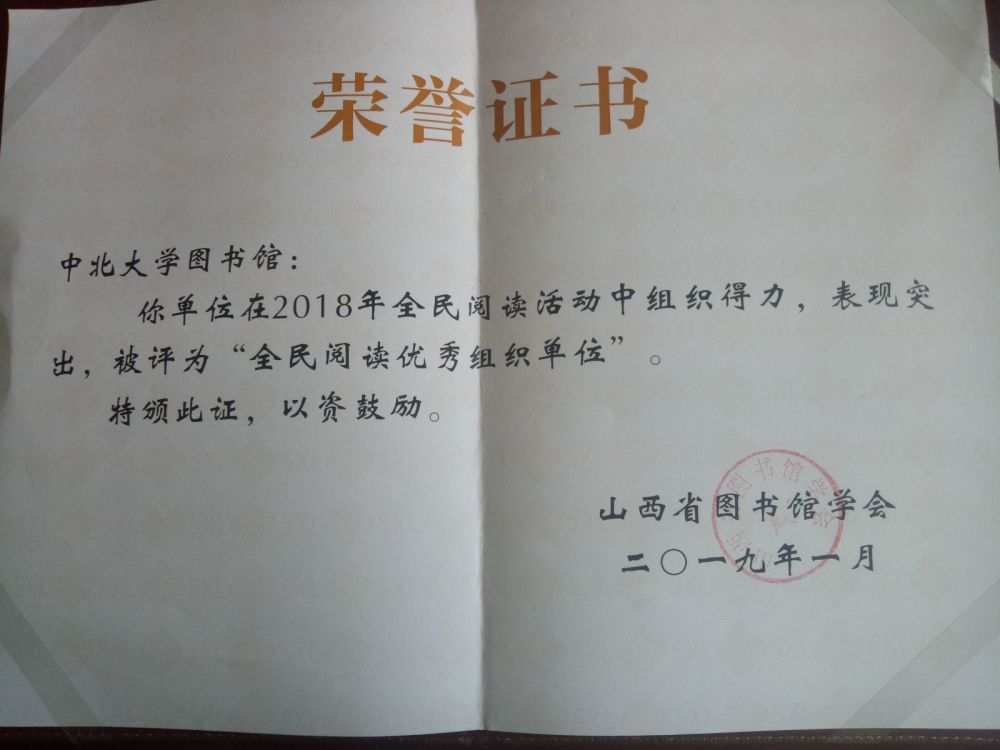 荣誉证书
中北大学图书馆：
你单位在2018年全民阅读活动中组织得力，表现突
出，被评为“全民阅读优秀组织单位”。
特颁此证，以资鼓励。
山西省图书馆学会
二〇一九年一月